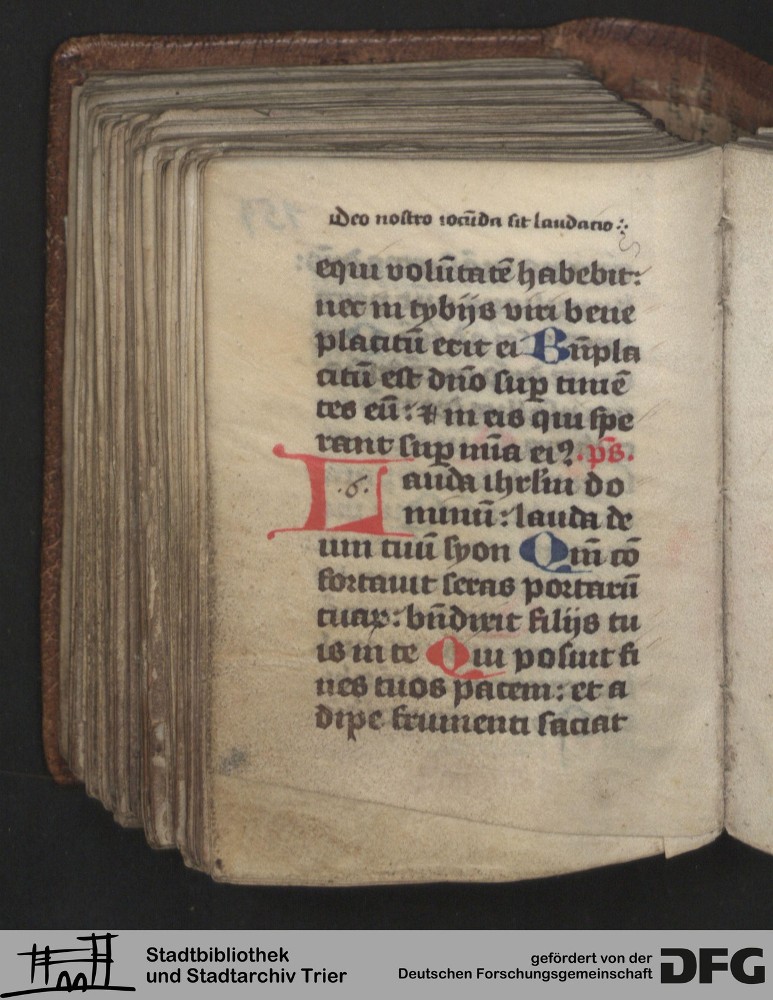 Deo nostro iocūda sit laudatio
equi volūtatē habebit:
nec in tybijs viri bene
placitū erit ei Bn̄pla
citū est dn̄o sup timē
tes eū: ⁊ in eis qui spe
rant sup mīa eiꝰ. ps.
.6. Lauda ihrlm̄ do
minū: lauda de
um tuū syon Qm̄ cō
fortauit seras portarū
tuaꝝ: bn̄dixit filijs tu
is in te Qui posuit fi
nes tuos pacem: et a
dipe frumenti saciat
Stadtbibliothek
und Stadtarchiv Trier
gefördert von der
Deutschen Forschungsgemeinschaft
DFG